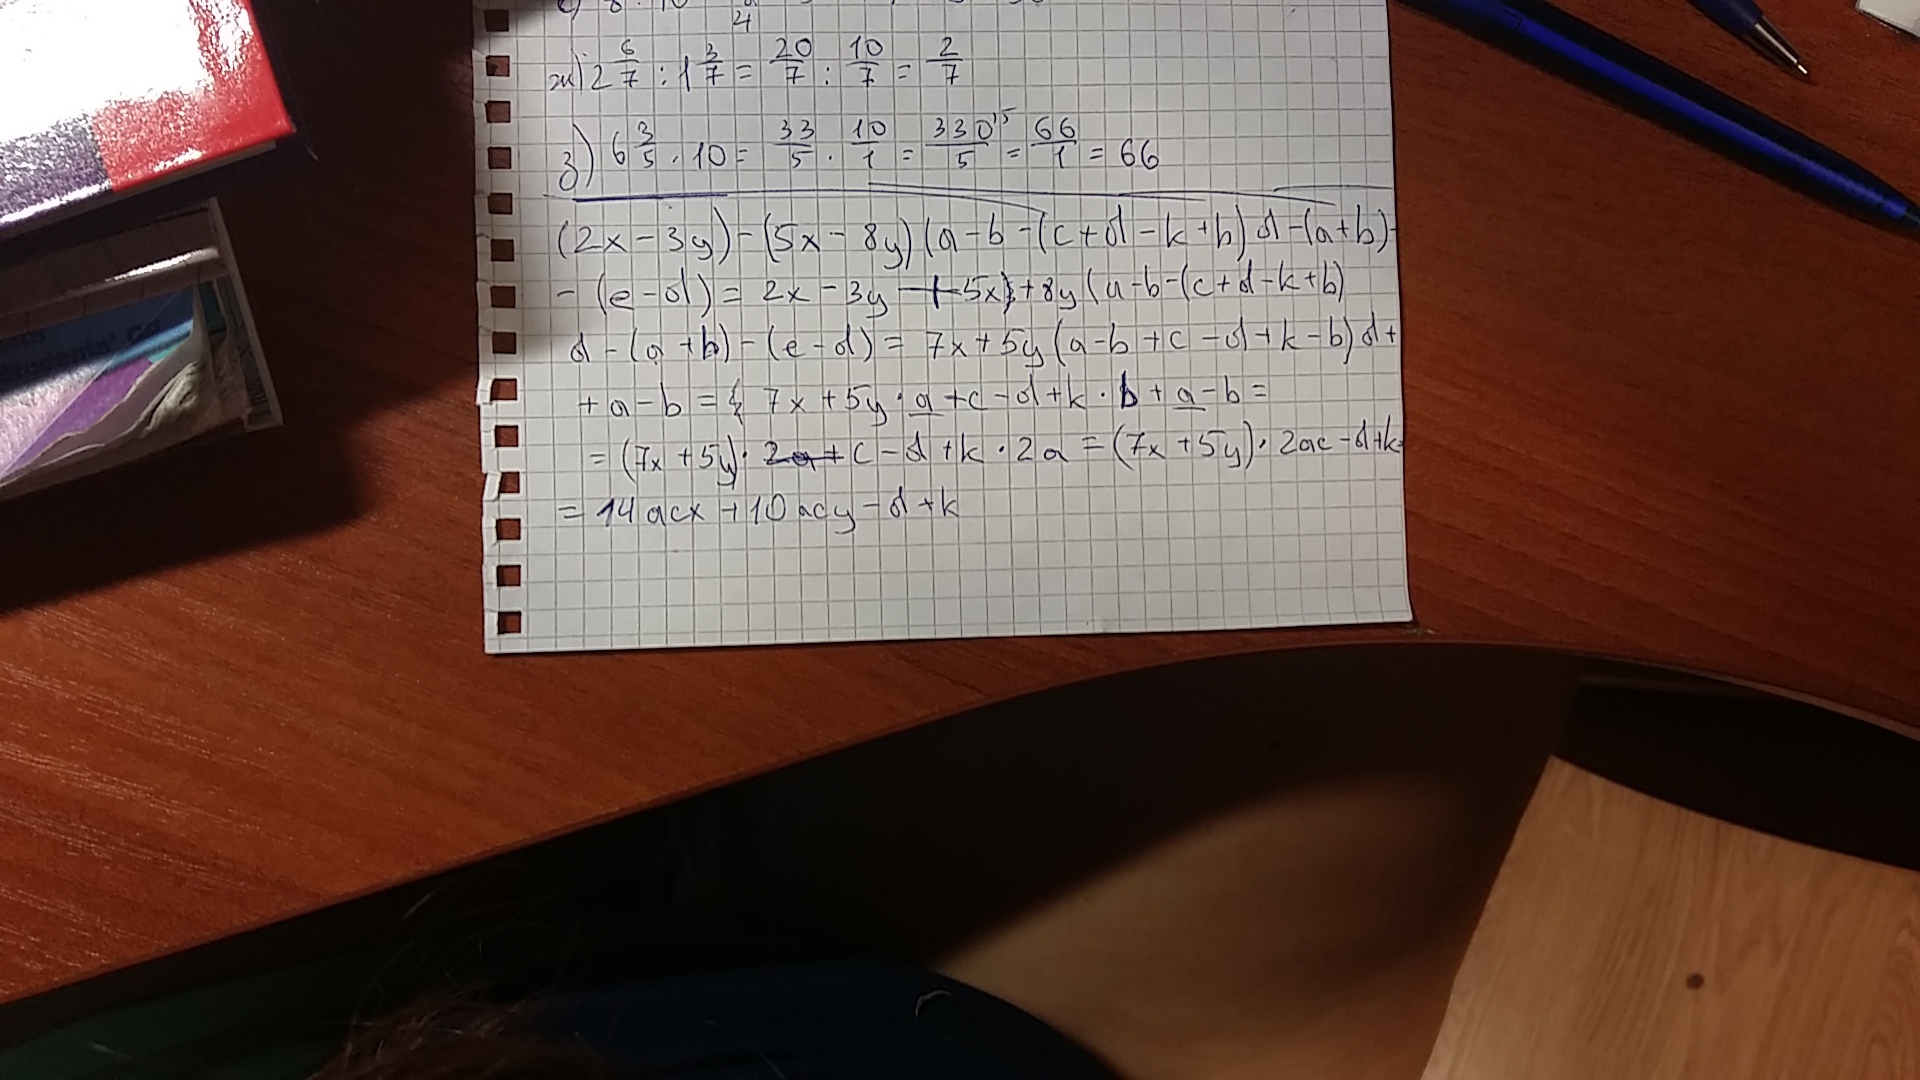 4
ж) 2 6/7 : 1 3/7 = 20/7 : 10/7 = 2/7
з) 6 3/5 · 10 = 33/5 · 10/1 = 330/5 = 66/1 = 66
(2x-3y)-(5x-8y)(a-b-(c+d-k+b)d-(a+b)-
-(e-d)= 2x-3y-5x+8y(a-b-(c+d-k+b)
d-(a+b)-(e-d)= 7x+5y(a-b+c-d+k-b)d+
+a-b= 7x+5y·a+c-d+k·b+a-b=
=(7x+5y)· 2a+ c-d+k·2a=(7x+5y)·2ac-d+k=
=14acx+10acy-d+k